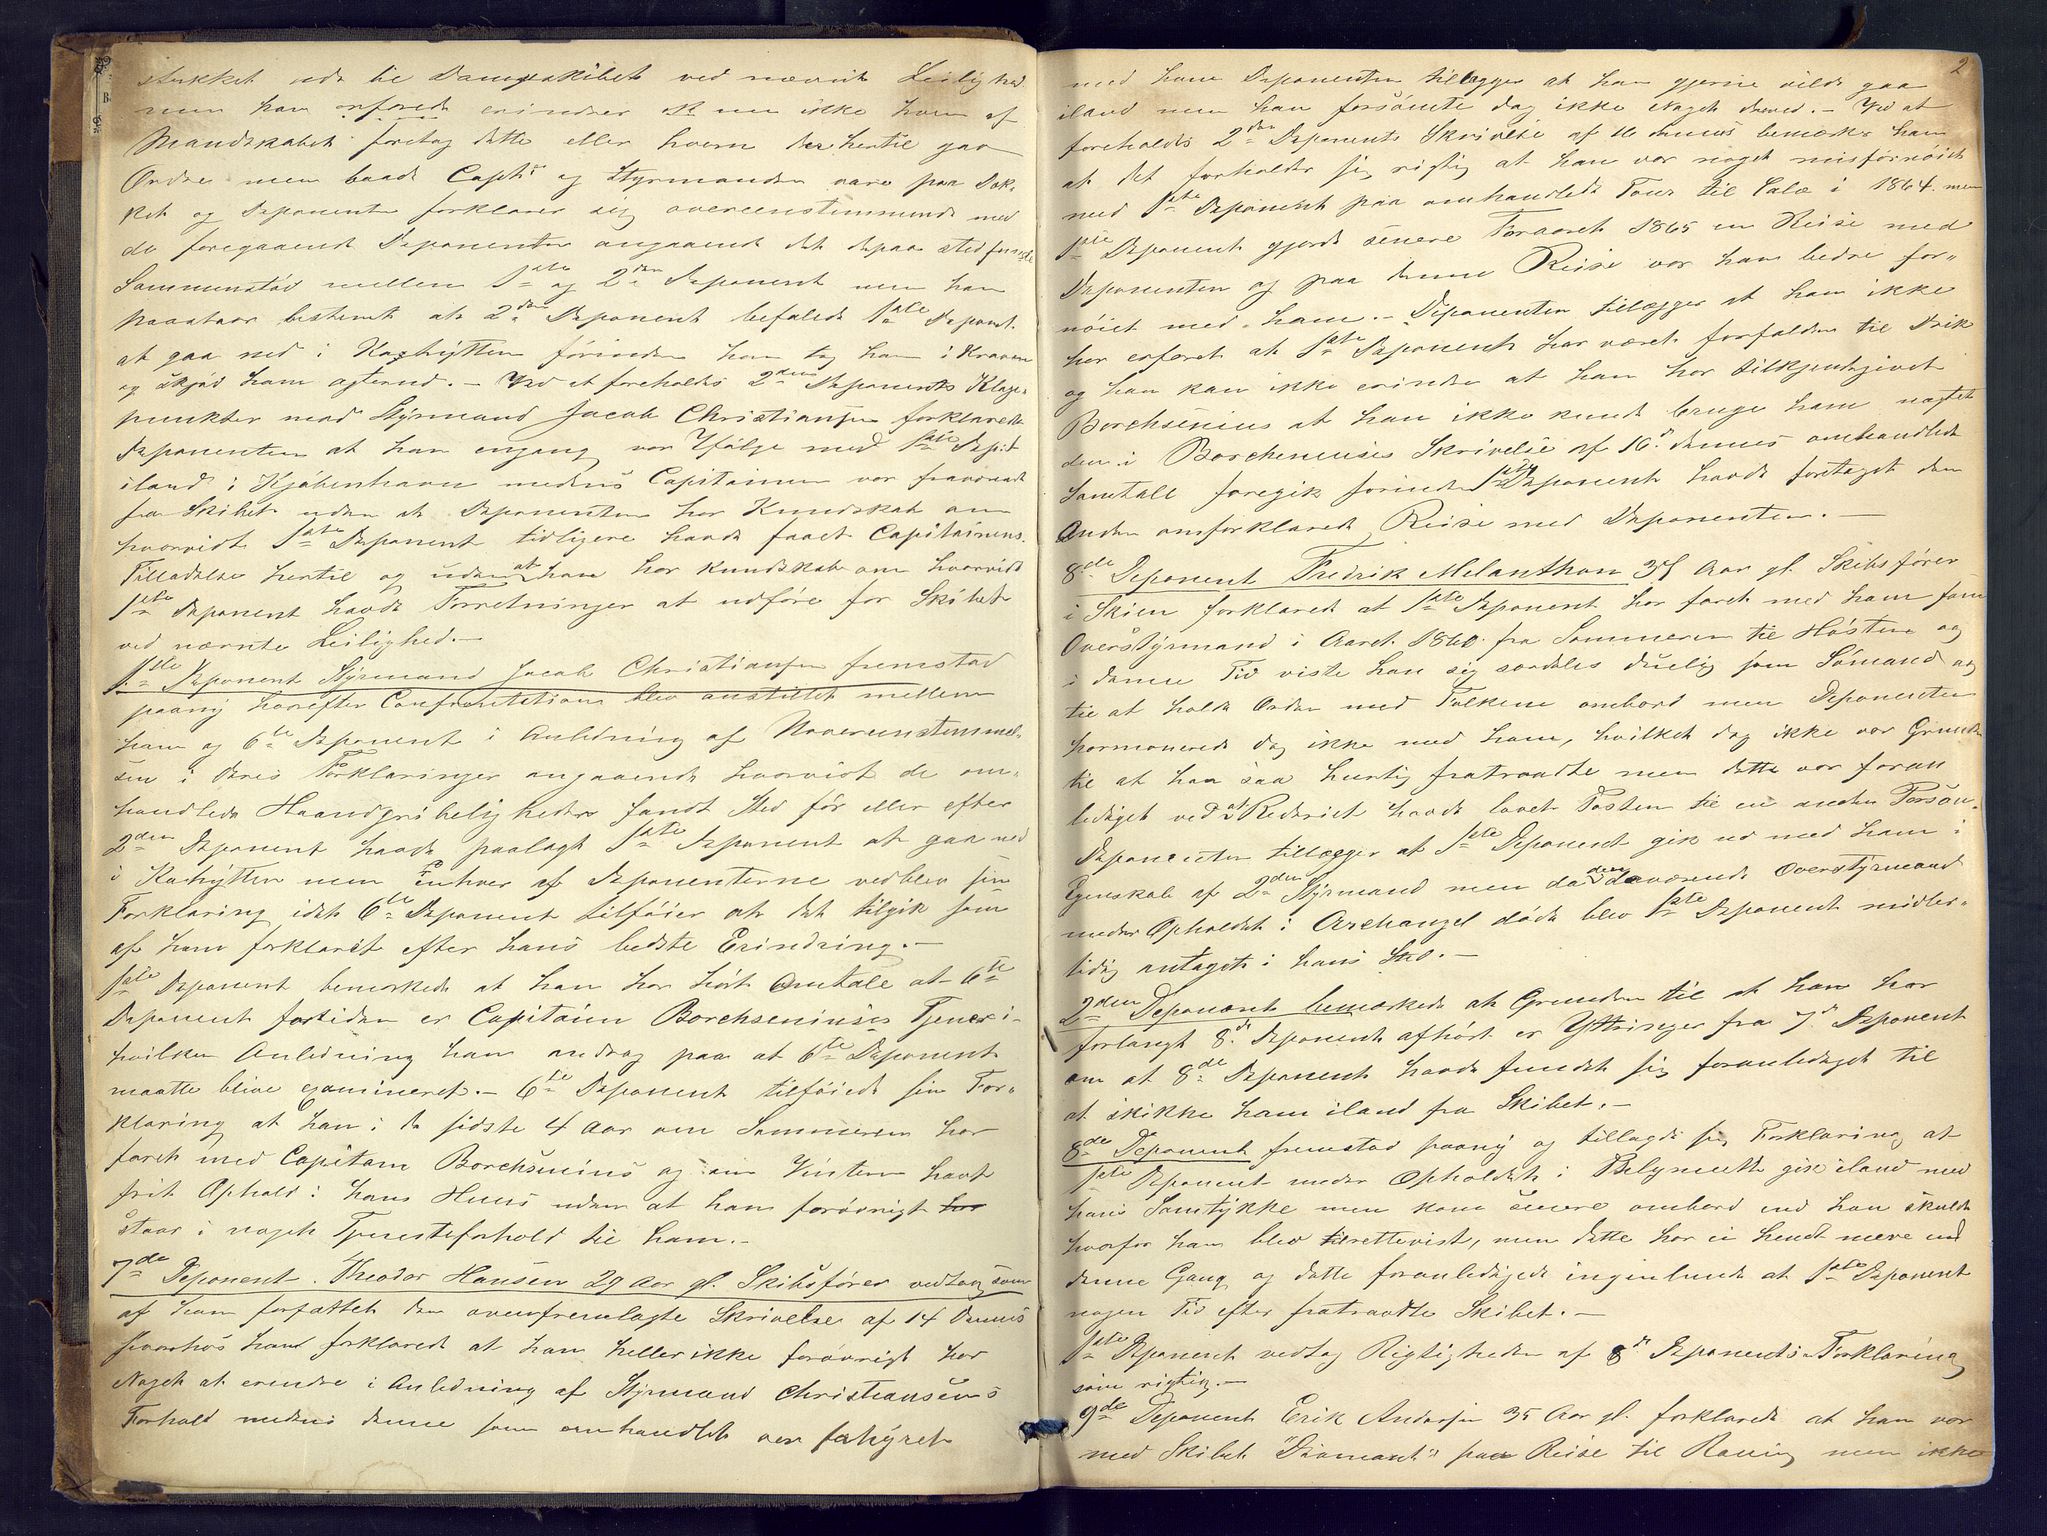 stukket ud til Dampskibet ved nævnte Leilighed
men han anførte erindrer nu ikke hvem af
Mandskabet foretog dette eller hvem der hertil gav
Ordre men baade Captn og Styrmanden vare paa Dæk-
ket og Deponenten forklarer sig overeensstemmende med
de foregaaende Deponenter angaaende det derpaa stedfundne
Sammenstød mellem 1ste og 2den Deponent men han
paastaar bestemt at 2den Deponent befalede 1ste Deponent
at gaa ned i Kahytten førinden han tog ham i Kraven
og skjød ham agterud. – Ved at foreholdes 2den Deponents Klage-
punkter mod Styrmand Jacob Christiansen forklarede
Deponenten at han engang var Ifølge med 1ste Dept
iland i Kjøbenhavn medens Capitainen var fraværende
fra Skibet uden at Deponenten har Kundskab om
hvorvidt 1ste Deponent tidligere havde faaet Capitainens
Tilladelse hertil og uden at han har Kundskab om hvorvidt
1ste Deponent havde Forretninger at udføre for Skibet
ved nævnte Leilighed. –
1ste Deponent Styrmand Jacob Christiansen fremstod
paany hvorefter Confrontation blev anstillet mellem
ham og 6te Deponent i Anledning af Uoverensstemmel-
sen i deres Forklaringer angaaende hvorvidt de om-
handlede Haandgribeligheder fandt Sted før eller efter
2den Deponent havde paalagt 1ste Deponent at gaa ned
i Kahytten men enhver af Deponenterne vedblev sin
Forklaring idet 6te Deponent tilføier at det tilgik som
af ham forklaret efter hans bedste Erindring. –
1ste Deponent bemærkede at han har hørt Omtale at 6te
Deponent fortiden er Capitain Borchseniuses Tjener i
hvilken Anledning han androg paa at 6te Deponent
maatte blive examineret. – 6te Deponent tilføiede sin For-
klaring at han i de sidste 4 Aar om Sommeren har
faret med Capitain Borchsenius og om Vinteren havt
frit Ophold i hans Huus uden at han forøvrigt
staar i noget Tjenesteforhold til ham. –
7de Deponent. Theodor Hansen 29 Aar gl. Skibsfører vedtog som
af ham forfattet den ovenfremlagte Skrivelse af 14 Dennes
hvorhos han forklarede at han heller ikke forøvrigt har
Noget at erindre i Anledning af Styrmand Christiansens
Forhold medens denne som omhandlet var forhyret
2
med ham Deponenten tillægger at han gjerne vilde gaa
iland men han forsømte dog ikke Noget derved. – Ved at
foreholdes 2den Deponents Skrivelse af 16 Dennes bemærker han
at det forholder sig rigtig at han var noget misfornøiet
med 1ste Deponent paa omhandlede Tour til Salæ i 1864. men
1ste Deponent gjorde senere Foraaret 1865 en Reise med
Deponenten og paa denne Reise var han bedre for-
nøiet med ham. – Deponenten tillægger at han ikke
har erfaret at 1ste Deponent har været forfalden til Drik
og han kan ikke erindre at han har tilkjendegivet
Borchsenius at han ikke kunde bruge ham
den i Borchseniuses Skrivelse af 16d dennes omhandlede
Samtale foregik førinden 1ste Deponent havde foretaget den
Anden omforklarede Reise med Deponenten. –
8de Deponent Fredrik Melanthon 35 Aar gl. Skibsfører
i Skien forklarede at 1ste Deponent har faret med ham som
Overstyrmand i Aaret 1860 fra Sommeren til Høsten og
i denne Tid viste han sig særdeles duelig som Sømand og
til at holde Orden med Folkene ombord men Deponenten
harmonerede dog ikke med ham, hvilket dog ikke var Grunden
til at han saa hurtig fratraadte men dette var foran-
lediget ved at Rederiet havde lovet Posten til en anden Person.
Deponenten tillægger at 1ste Deponent gik ud med ham i
Egenskab af 2den Styrmand men da den daværende Overstyrmand
under Opholdet i Archangel døde blev 1ste Deponent midler-
tidig antaget i hans Sted. –
2den Deponent bemærkede at Grunden til at han har
forlangt 8de Deponent afhørt er Yttringer fra 7de Deponent
om at 8de Deponent havde fundet sig foranlediget til
at skikke ham iland fra Skibet. –
8de Deponent fremstod paany og tillagde sin Forklaring at
1ste Deponent under Opholdet i gik iland med
hans Samtykke men kom senere ombord end han skulde
hvorfor han blev tilrettevist, men dette har ei hendt mere end
denne Gang og dette foranledigede ingenlunde at 1ste Deponent
nogen Tid efter fratraadte Skibet. –
1ste Deponent vedtog Rigtigheden af 8de Deponents Forklaring
som rigtig. –
9de Deponent Erik Andersen 35 Aar gl. forklarede at han var
med Skibet "Diamant" paa Reise til men ikke